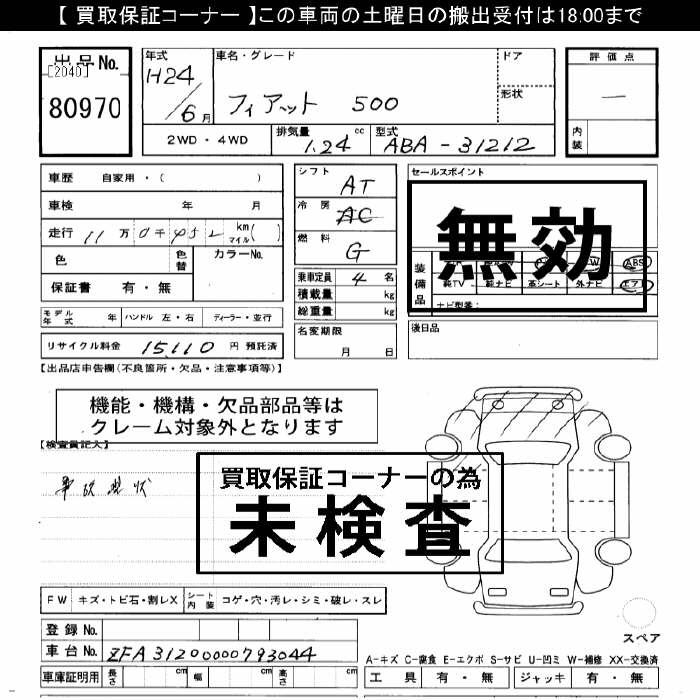 【 買取保証コーナー 】この車両の土曜日の搬出受付は18:00まで
出品No.
[2040]
80970
年式
H24/6月
車名・グレード
フィアット 500
ドア
形状
2WD・4WD
排気量
1.24cc
型式
ABA-31212
評価点
—
内装
車歴 自家用・( )
車検 年 月
走行 11万0千452km マイル( )
色
色替
カラーNo.
保証書 有・無
モデル年式 年 ハンドル 左・右 ディーラー・並行
リサイクル料金 15,110 円 預託済
シフト AT
冷房 AC
燃料 G
乗車定員 4 名
積載量 kg
総重量 kg
名変期限
月 日
セールスポイント
無効
装備品
ABS
純TV 純ナビ 革シート 外ナビ エア
ナビ型番:
後日品
【出品店申告欄(不良箇所・欠品・注意事項等)】
機能・機構・欠品部品等は
クレーム対象外となります
【検査員記入】
事故現状
買取保証コーナーの為
未検査
FW キズ・トビ石・割レX シート内装 コゲ・穴・汚レ・シミ・破レ・スレ
登録No.
車台No. ZFA31200000793044
車庫証明用 長さ cm 幅 cm 高さ cm
スペア
A-キズ C-腐食 E-エクボ S-サビ U-凹ミ W-補修 XX-交換済
工具 有・無 ジャッキ 有・無